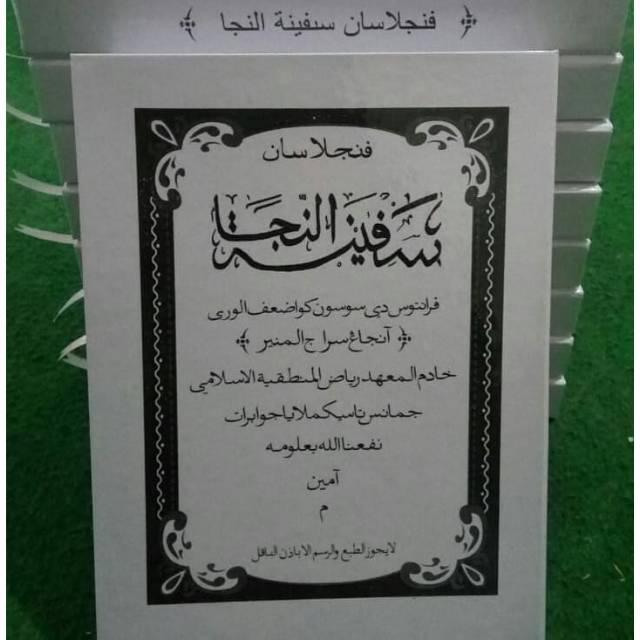 فنجلاسان سفينة النجا
فنجلاسان
سفينة النجا
فرانتوس دي سوسون كو اضعف الورى
آنجاڠ سراج المنير
خادم المعهد رياض المنطقية الاسلامي
جمانس تاسيكملايا جوا برات
نفعنا الله بعلومه
آمين
م
لا يجوز الطبع والرسم الا باذن الناقل